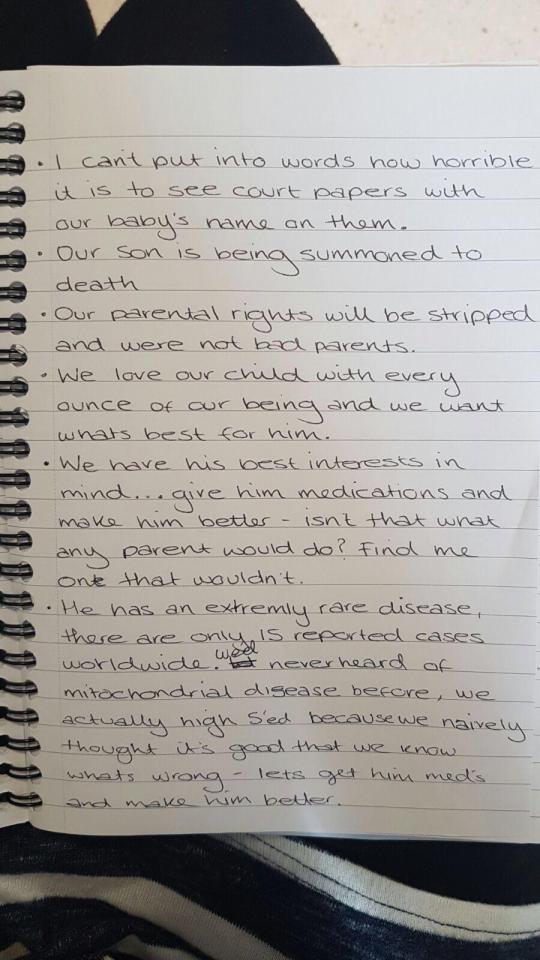 • I can't put into words how horrible
it is to see court papers with
our baby's name on them.
• Our son is being summoned to
death
• Our parental rights will be stripped
and were not bad parents.
• We love our child with every
ounce of our being and we want
whats best for him.
• We have his best interests in
mind... give him medications and
make him better - isn't that what
any parent would do? Find me
one that wouldn't.
• He has an extremly rare disease,
there are only 15 reported cases
worldwide. We'd never heard of
mitochondrial disease before, we
actually high 5'ed because we naively
thought it's good that we know
whats wrong - lets get him med's
and make him better.